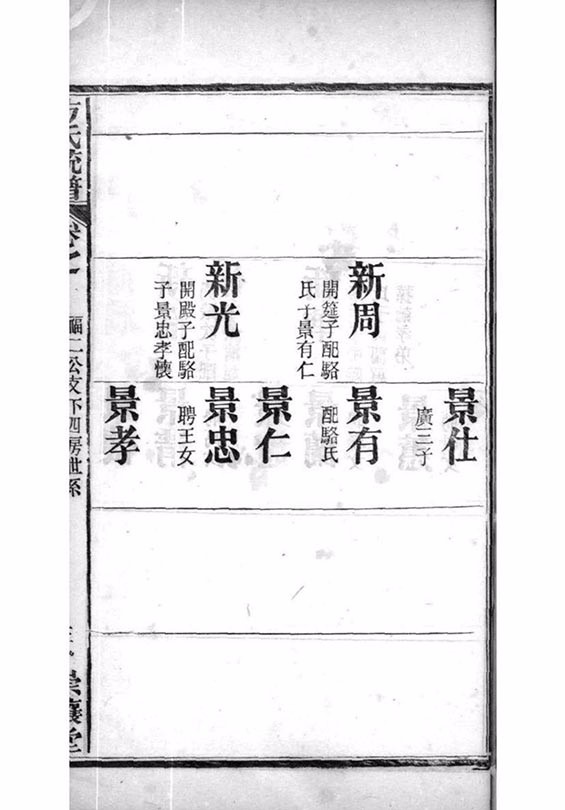 景仕
廣三子
新周
開筵子配駱
氏子景有仁
景有
配駱氏
景仁
新光
開殿子配駱
子景忠孝懷
景忠
聘王女
景孝
方氏統譜
卷七
福二公支下四房世系
崇讓堂